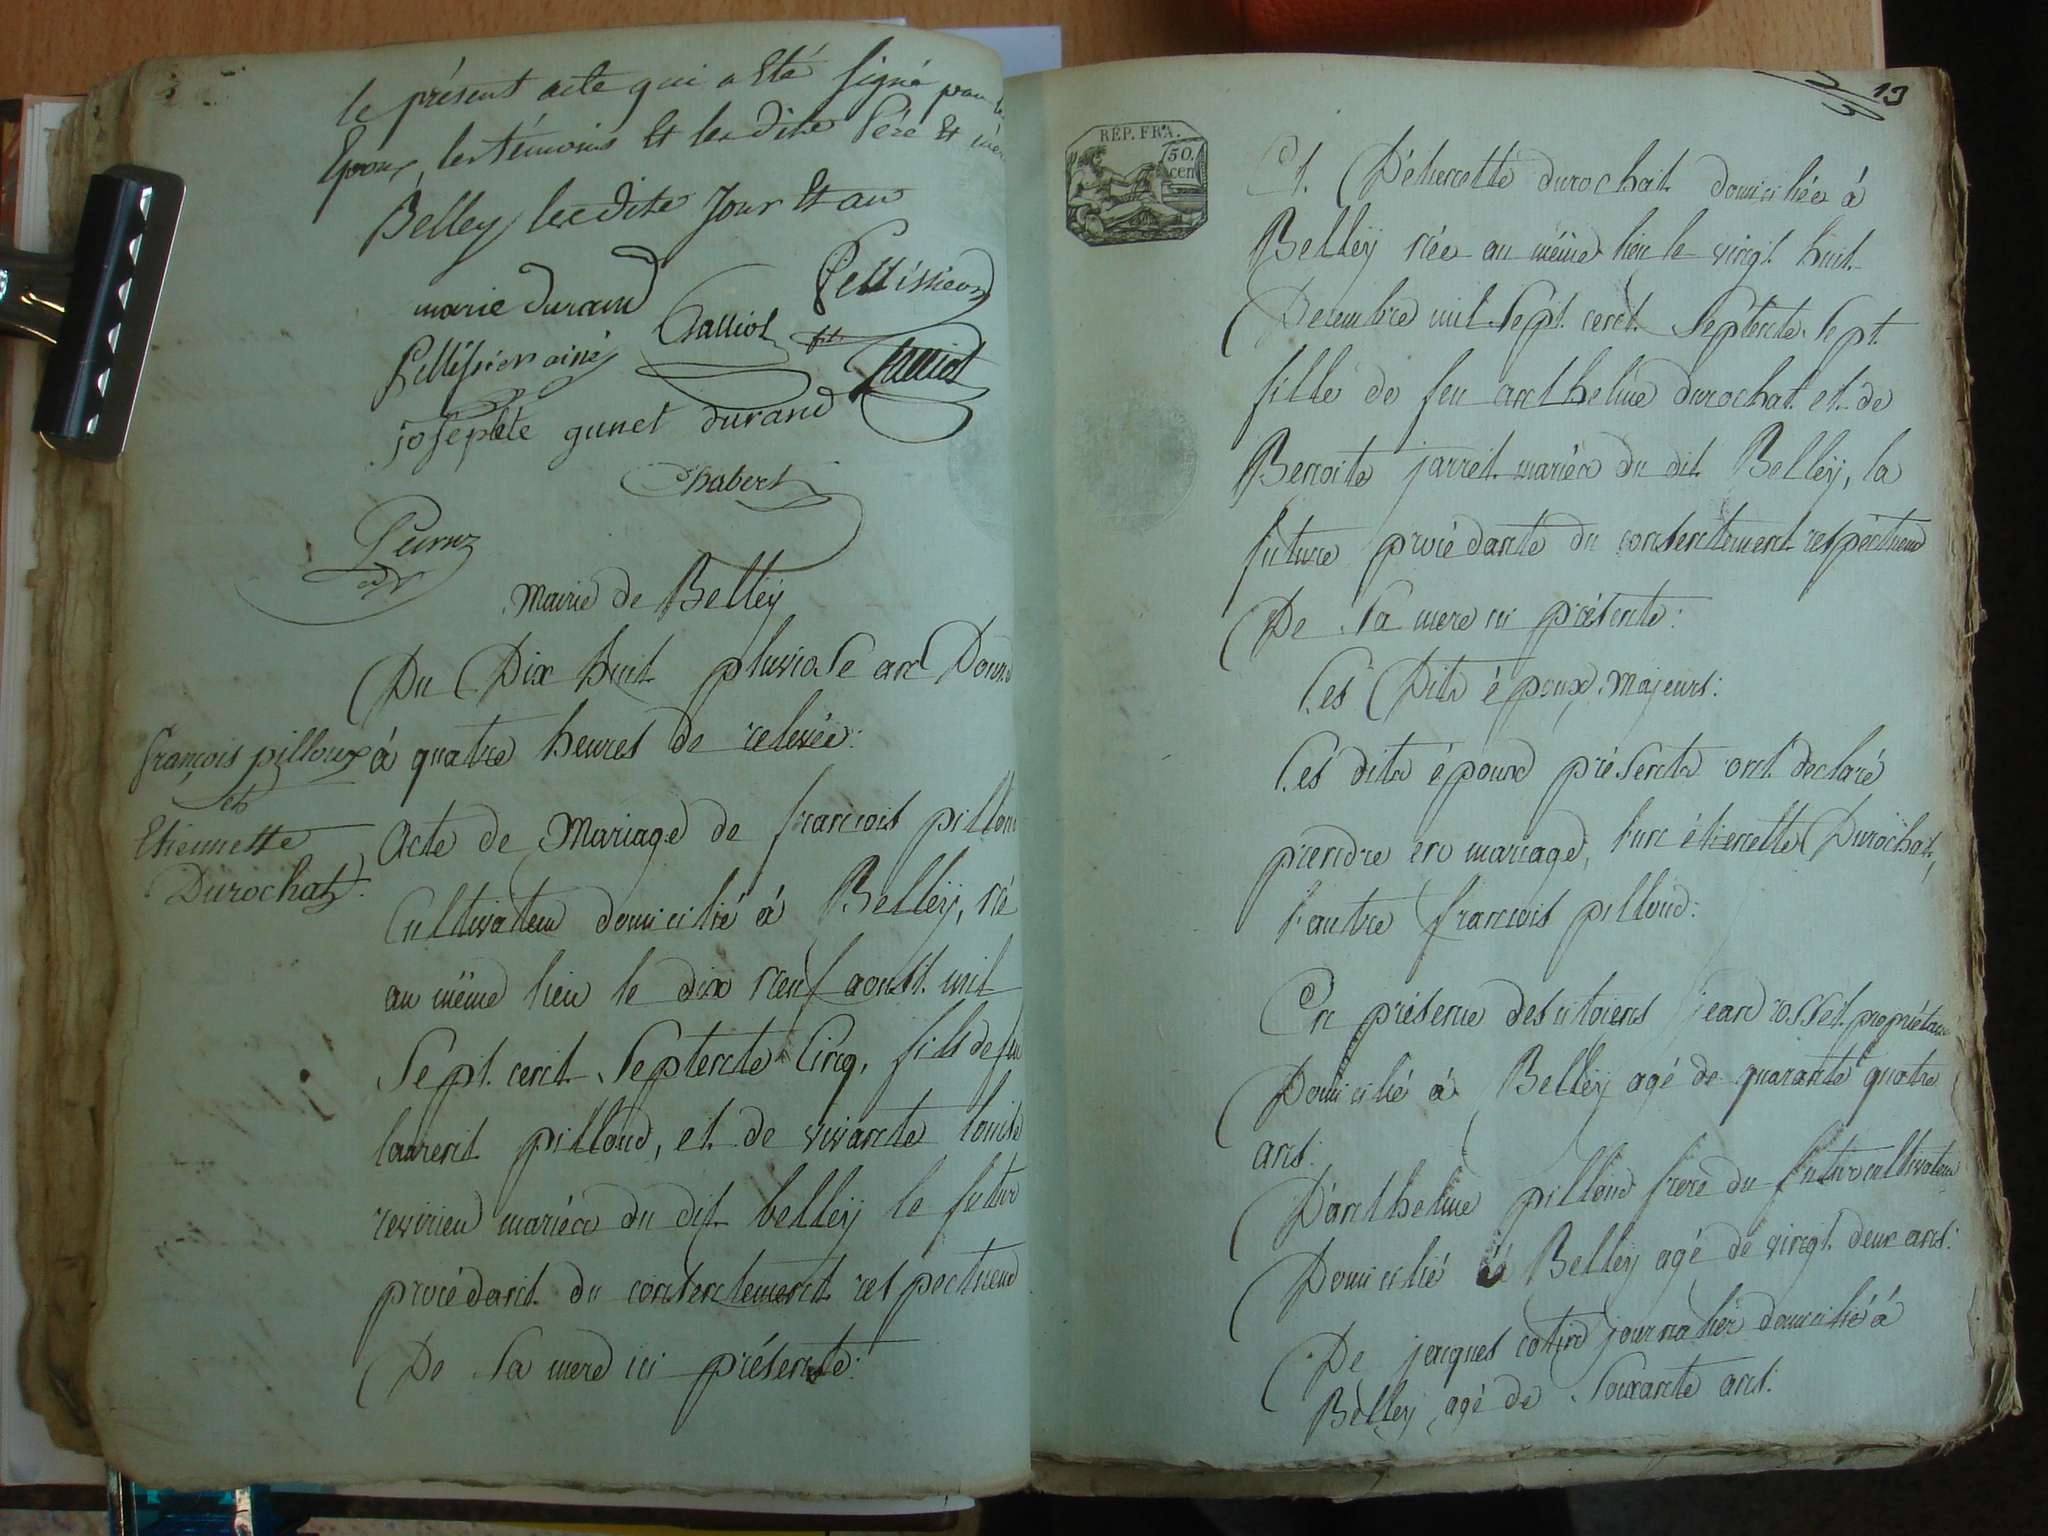 le présent acte qui a été signé par les
Epoux, les témoins et les dits Père et mère
Belley, lesdits Jour et an
marie durand
Pellissier
Galliot
fils
Pellissier ainé
Galliot
josephte gunet durand
Chabert
mairie de Belleÿ
Du Dix huit pluviose an Douze
à quatre heures de relevée:
françois pilloux
et
Etiennette
Durochat
Acte de Mariage de françois pilloud
Cultivateur domicilié à Belleÿ, né
au même lieu le dix neuf aoust mil
Sept cent Septente Cinq, fils de feu
laurent pilloud, et de vivante louise
revirieu mariés du dit belleÿ le futur
procédant du consentement respectueux
De Sa mere ici présente:
13
RÉP. FRA.
50.
cen
Et D'étiennette durochat domiciliée à
Belleÿ née au même lieu le vingt huit
Decembre mil Sept cent Septente Sept
fille de feu anthelme durochat et de
Benoite jarret mariés du dit Belleÿ, la
future procédante du consentement respectueux
De Sa mere ici présente:
Les Dits époux majeurs:
Les dits époux présents ont déclaré
prendre en mariage, l'un étiennette Durochat,
l'autre françois pilloud:
En présence des citoiens jean rosset propriétaire
Domicilié à Belleÿ agé de quarante quatre
ans:
D'anthelme pilloud frere du futur cultivateur
Domicilié à Belleÿ agé de vingt deux ans:
De jacques cotin journalier domicilié à
Belleÿ agé de Soixante ans: